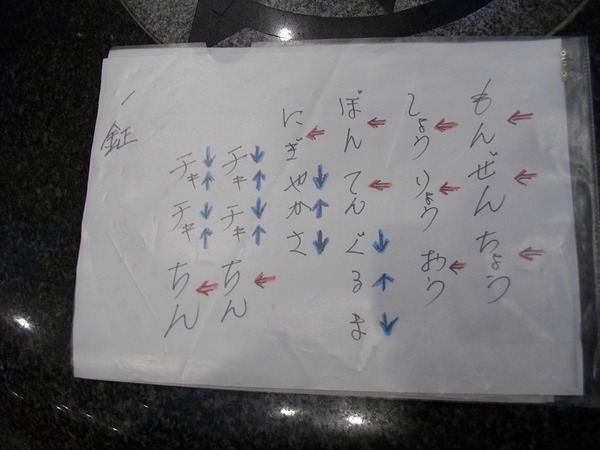 もんぜんちょう
しょうりょうおう
ぼんてんぐるま
にぎやかさ
チキチキちん
チキチキちん
鉦